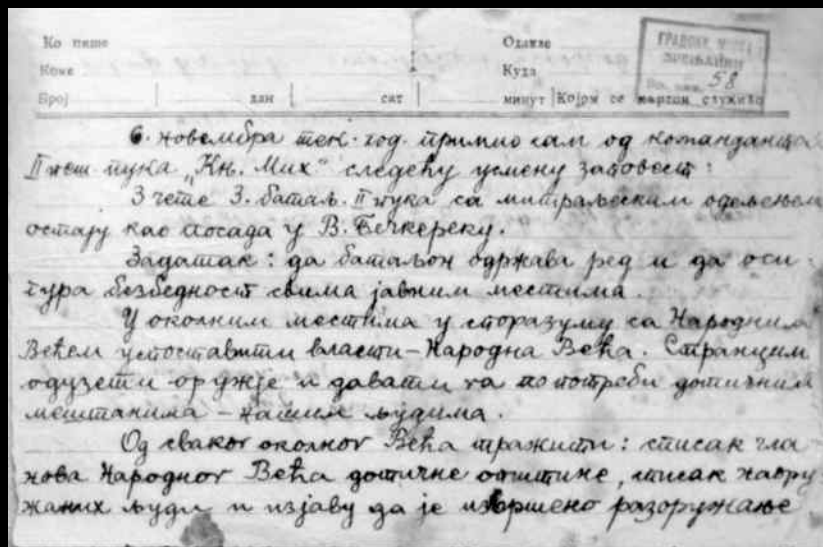 Ко пише
Коме
Број дан сат
Одакле
Куда
минут Којом се картон служило
ГРАДСКИ
58
6. новембра тек. год. примио сам од команданта
II пеш. пука „Књ. Мих“ следећу усмену заповест:
3 чете 3. батаљ. II пука са митраљеским одељењем
остају као посада у В. Бечкереку.
Задатак: да батаљон одржава ред и да оси-
гура безбедност свима јавним местима.
У околним местима у споразуму са Народним
Већем успоставити власти – Народна Већа. Странцим
одузети оружје и давати га по потреби дотичним
мештанима – нашим људима.
Од сваког околног Већа тражити: списак чла
нова Народног Већа дотичне општине, списак наору
жаних људи и изјаву да је извршено разоружање